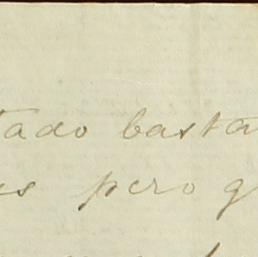 tado basta
es pero g